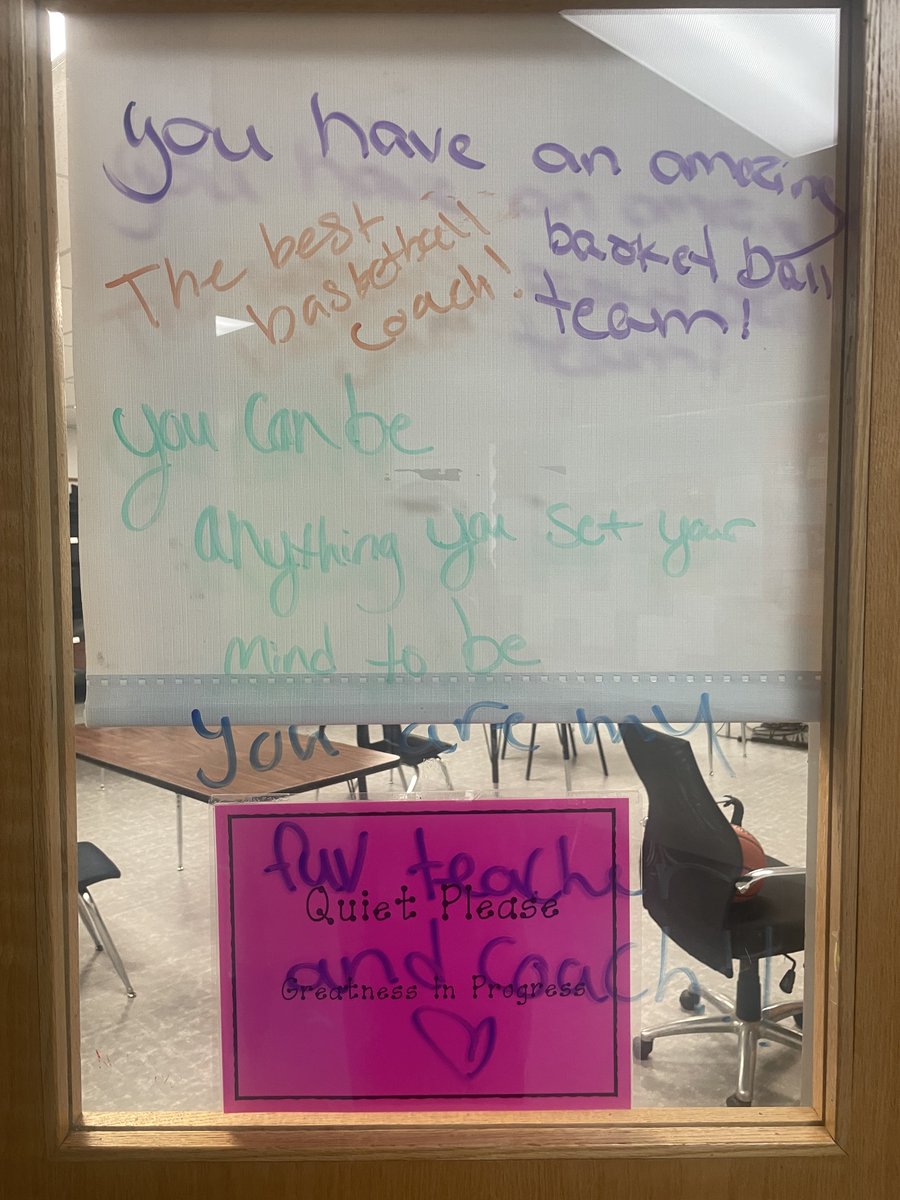 you have an amazing
basket ball
team!
The best
basketball
coach!
you can be
anything you set your
mind to be
you are my
fav teacher
and coach!!
Quiet Please
Greatness in Progress